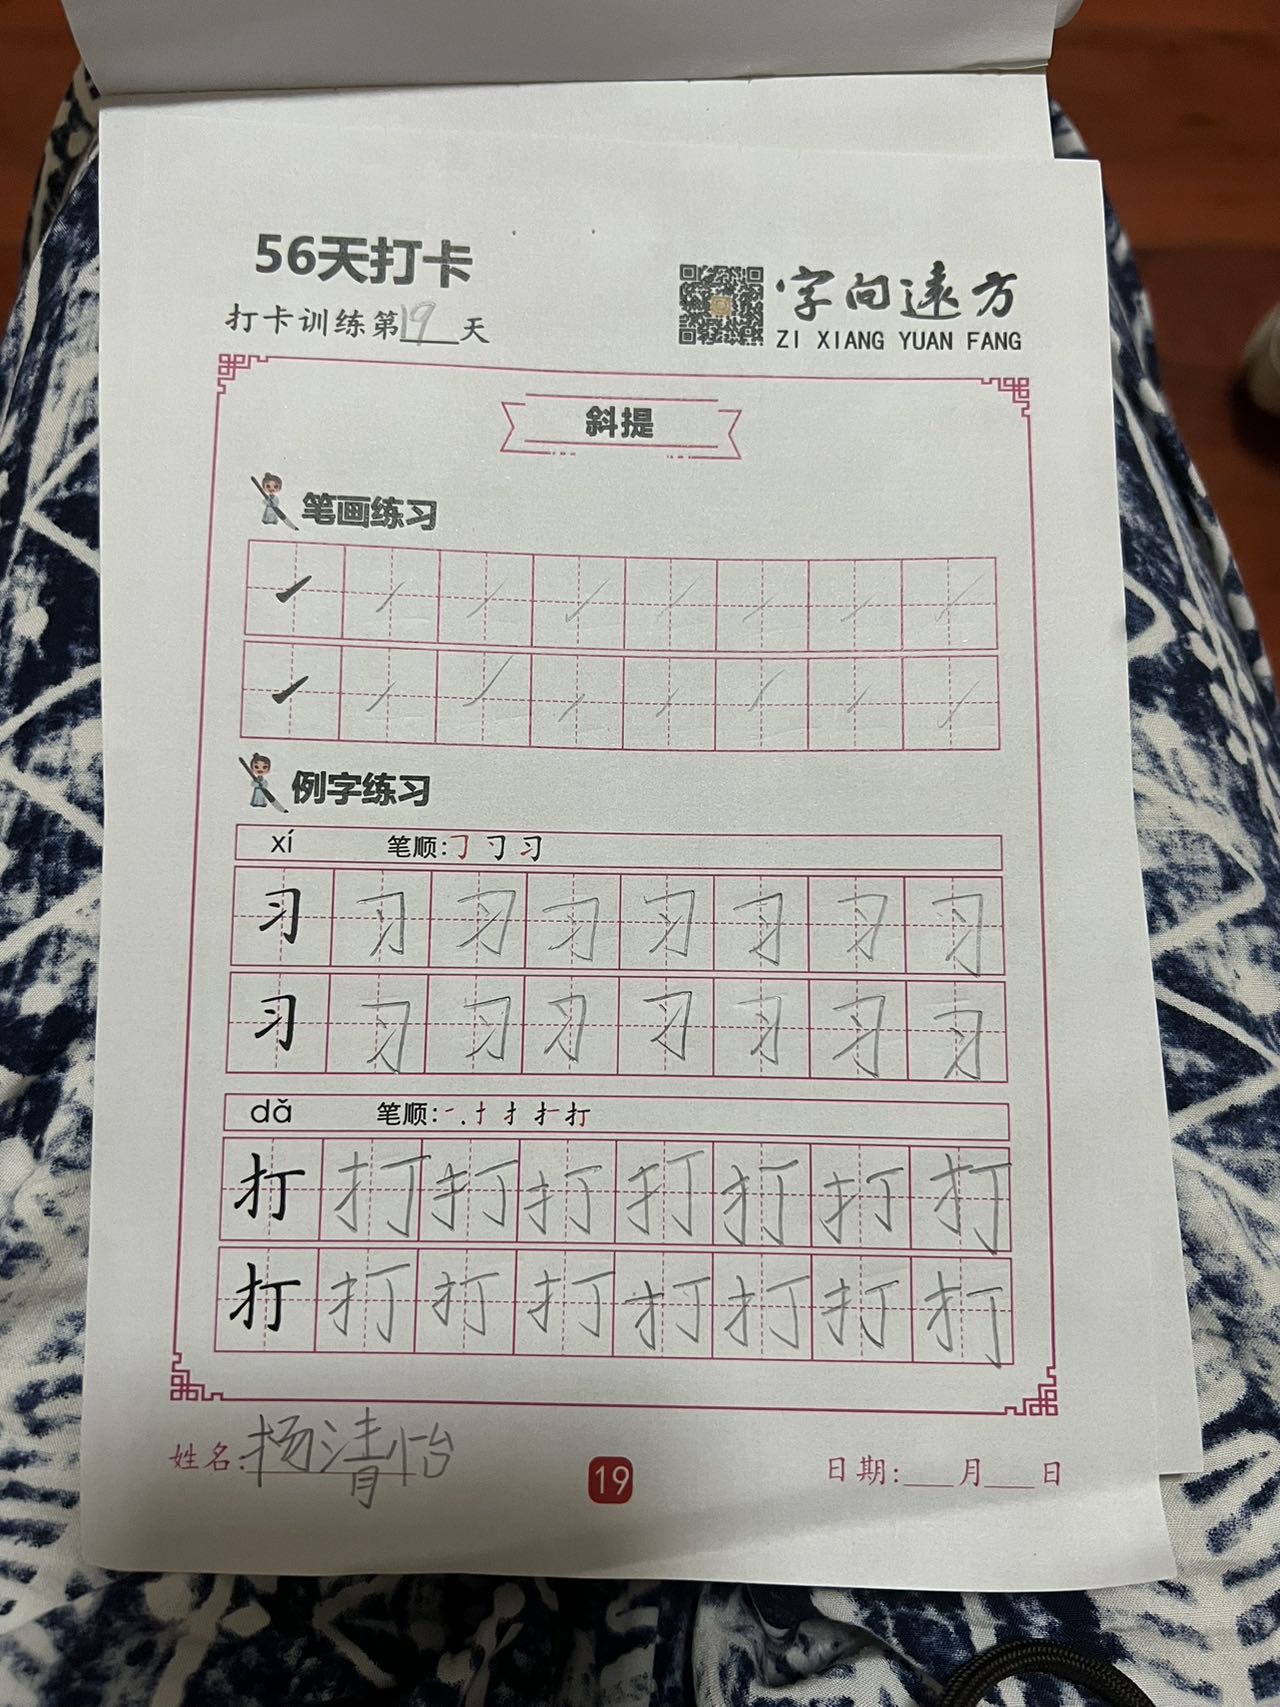 56天打卡
打卡训练第19天
字向远方
ZI XIANG YUAN FANG
斜提
笔画练习
例字练习
xí 笔顺:㇆ 刁 习
习 习 习 习 习 习 习 习
习 习 习 习 习 习 习 习
dǎ 笔顺:一 十 扌 扌一 打
打 打 打 打 打 打 打 打
打 打 打 打 打 打 打 打
姓名:杨清怡
19
日期:___月___日